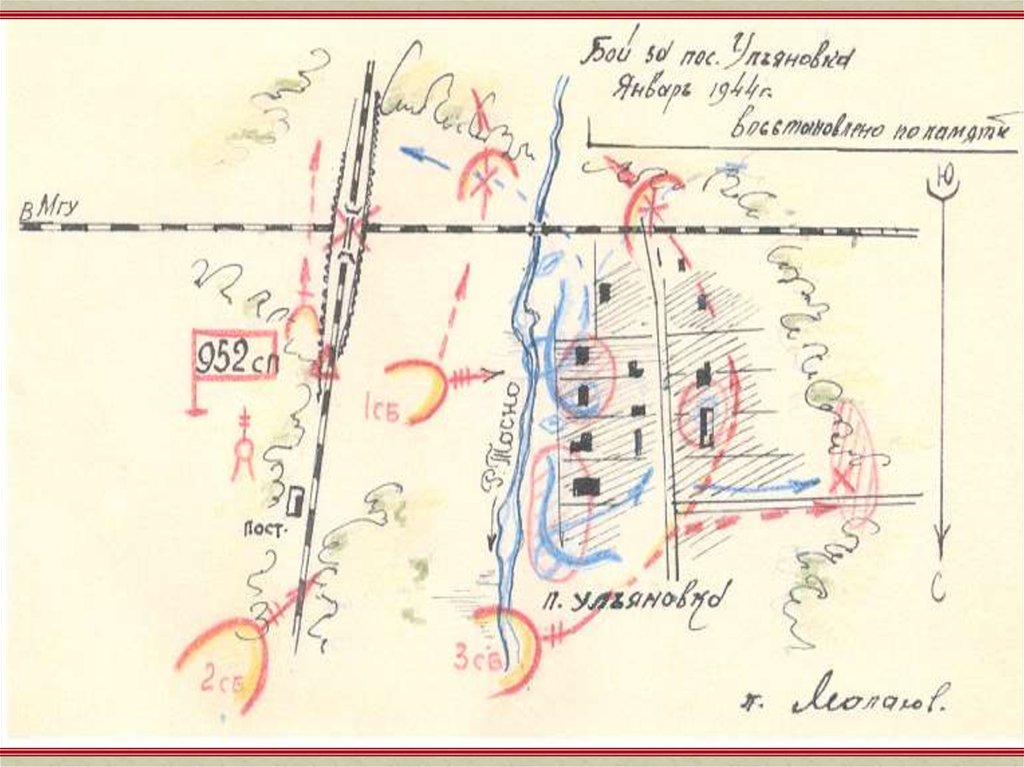 Бой за пос. Ульяновка
Январь 1944г.
Восстановлено по памяти
Ю
в Мгу
952 сп
1 сб
р. Тосно
пост.
п. Ульяновка
С
2 сб
3 сб
п.